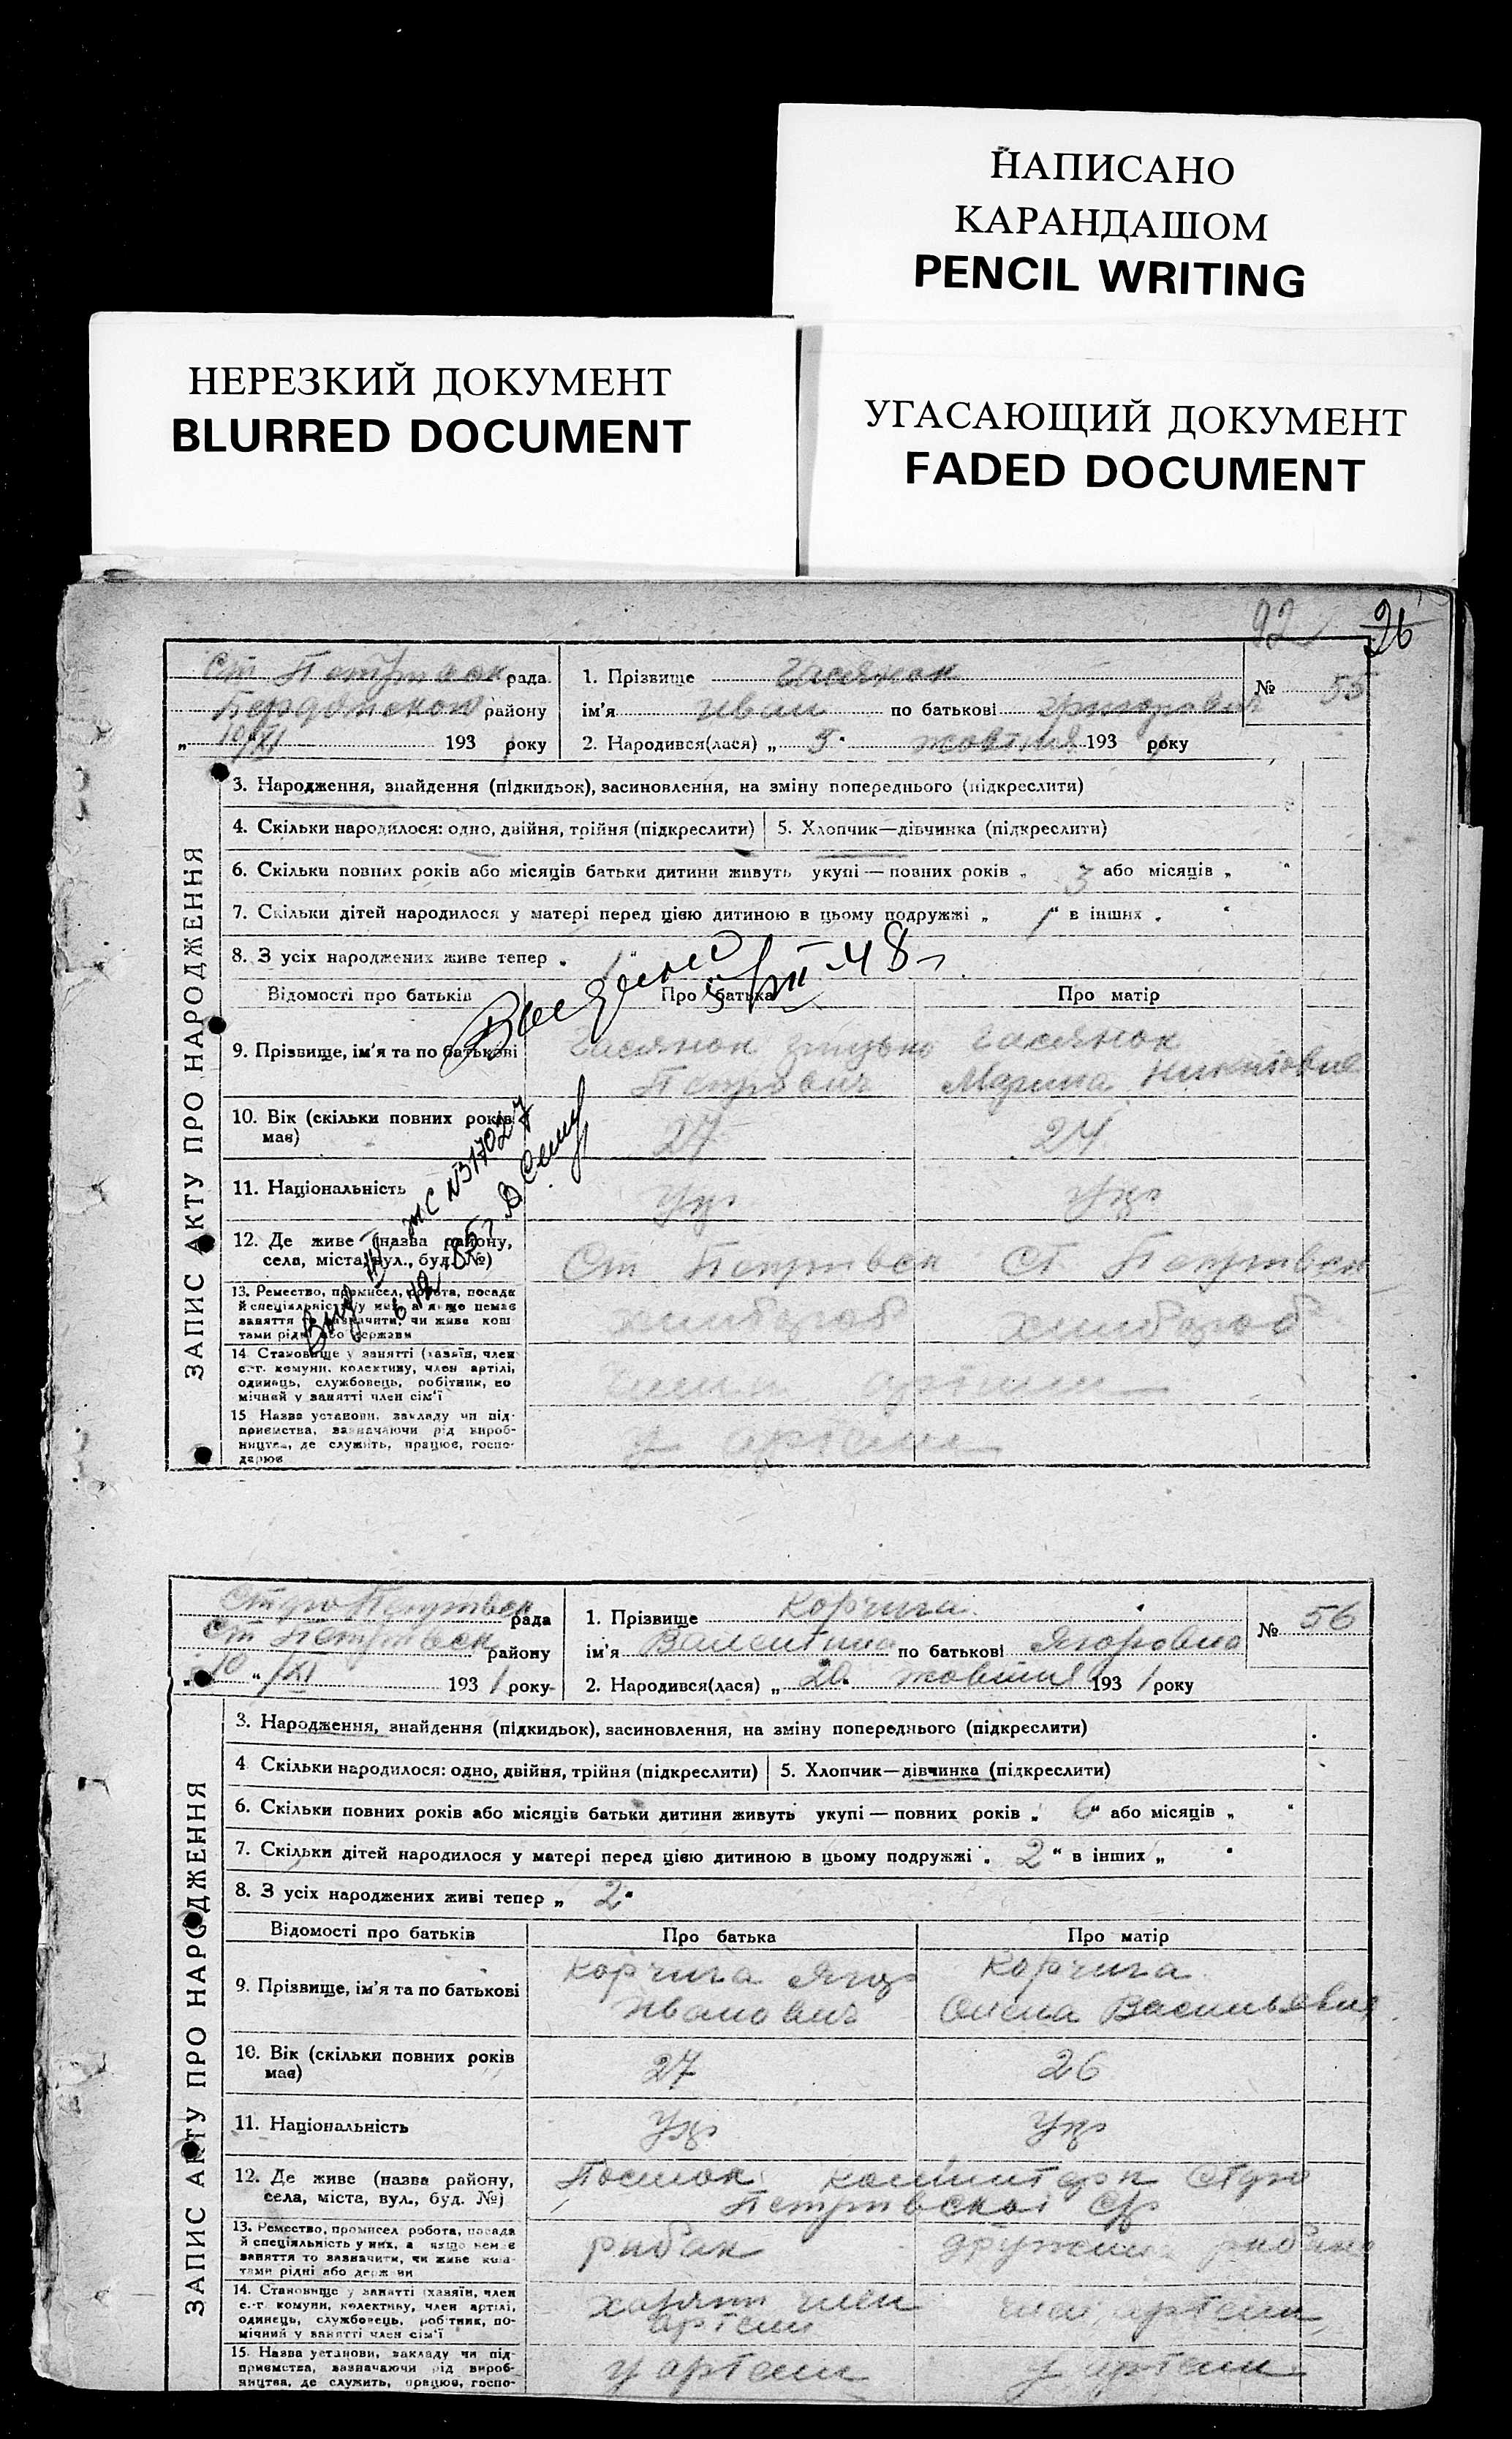 НАПИСАНО
КАРАНДАШОМ
PENCIL WRITING
НЕРЕЗКИЙ ДОКУМЕНТ
BLURRED DOCUMENT
УГАСАЮЩИЙ ДОКУМЕНТ
FADED DOCUMENT
92 26
ЗАПИС АКТУ ПРО НАРОДЖЕННЯ
рада 1. Прізвище Гасянок № 55
району ім'я Иван по батькові Григорович
10/XI 193 року 2. Народився(лася) „ 5 жовтня 193 року
3. Народження, знайдення (підкидьок), засиновлення, на зміну попереднього (підкреслити)
4. Скільки народилося: одно, двійня, трійня (підкреслити) 5. Хлопчик—дівчинка (підкреслити)
6. Скільки повних років або місяців батьки дитини живуть укупі — повних років „ 3 або місяців „ “
7. Скільки дітей народилося у матері перед цією дитиною в цьому подружжі „ 1 “ в інших
8. З усіх народжених живе тепер 1
48
Відомості про батьків Про батька Про матір
9. Прізвище, ім'я та по батькові Гасянок Грицько Гасянок
Петрович Марина Никитовна
10. Вік (скільки повних років має) 27 24
11. Національність Укр Укр
12. Де живе (назва району, села, міста, вул., буд. №) Ст Петрівск Ст Петрівск
13. Ремество, промисел, робота, посада й спеціяльність у них, а якщо немає заняття то зазначити, чи живе коштами рідні або держави хлибороб хлибороб
14. Становище у занятті (хазяїн, член с.-г. комуни, колективу, член артілі, одинець, службовець, робітник, помічний у занятті член сім'ї
15. Назва установи, закладу чи підприємства, зазначаючи рід виробництва, де служить, працює, господарює у артели
ЗАПИС АКТУ ПРО НАРОДЖЕННЯ
рада 1. Прізвище Корчига № 56
Ст Петрівск району ім'я Валентина по батькові Ягоровна
10 “ /XI 193 1 року 2. Народився(лася) „ 20 жовтня 193 1 року
3. Народження, знайдення (підкидьок), засиновлення, на зміну попереднього (підкреслити)
4. Скільки народилося: одно, двійня, трійня (підкреслити) 5. Хлопчик—дівчинка (підкреслити)
6. Скільки повних років або місяців батьки дитини живуть укупі — повних років „ 6 “ або місяців „ “
7. Скільки дітей народилося у матері перед цією дитиною в цьому подружжі „ 2 “ в інших „
8. З усіх народжених живі тепер „ 2
Відомості про батьків Про батька Про матір
9. Прізвище, ім'я та по батькові Корчига Ягор Корчига
Иванович Олена Васильевна
10. Вік (скільки повних років має) 27 26
11. Національність Укр Укр
12. Де живе (назва району, села, міста, вул., буд. №) Посилок
Петрівскоі
13. Ремество, промисел робота, посада й спеціяльність у них, а якщо немає заняття то зазначити, чи живе коштами рідні або держави рибак дружина рибака
14. Становище у занятті (хазяїн, член с.-г. комуни, колективу, член артілі, одинець, службовець, робітник, помічний у занятті член сім'ї член артели член артели
15. Назва установи, закладу чи підприємства, зазначаючи рід виробництва, де служить, працює, госпо- у артели у артели